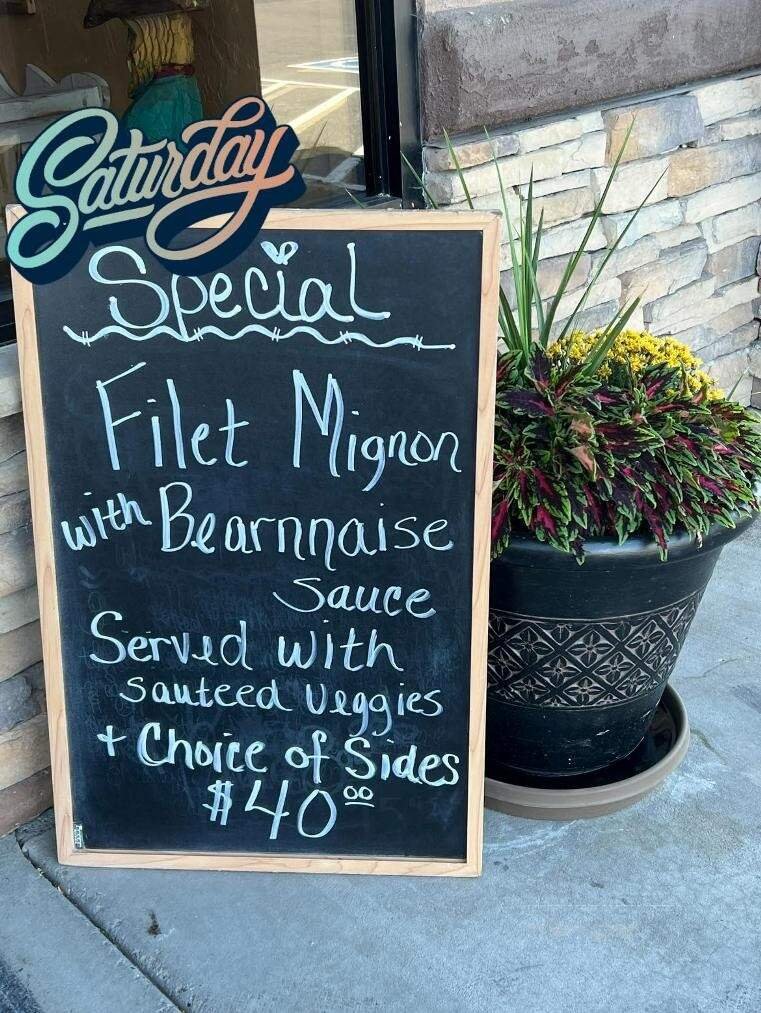 Saturday
Special
Filet Mignon
with Bearnnaise
sauce
Served with
sauteed veggies
+ Choice of Sides
$40.00